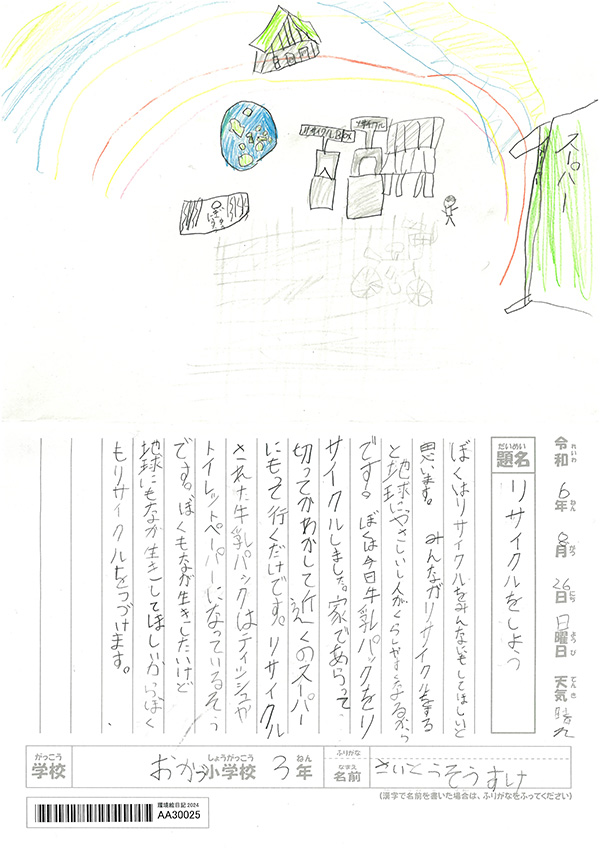 スーパー
リサイクルBOX
リサイクル
令和6年8月26日日曜日天気晴れ
れいわ ねん がつ にち ようび てんき
だいめい
題名
リサイクルをしよう
ぼくはリサイクルをみんなにもしてほしいと
思います。 みんながリサイクルをする
と地球にやさしいし人がくらしやすくなるから
です。ぼくは今日牛乳パックをリ
サイクルしました。家であらって
切ってかわかして近くのスーパー
にもって行くだけです。リサイクル
された牛乳パックはティッシュや
トイレットペーパーになっているそう
です。ぼくもなが生きしたいけど
地球にもなが生きしてほしいからぼく
もリサイクルをつづけます。
がっこう しょうがっこう ねん ふりがな
学校 おかつ小学校 3年 なまえ 名前 さいとうそうすけ
(漢字で名前を書いた場合は、ふりがなをふってください)
環境絵日記2024
AA30025